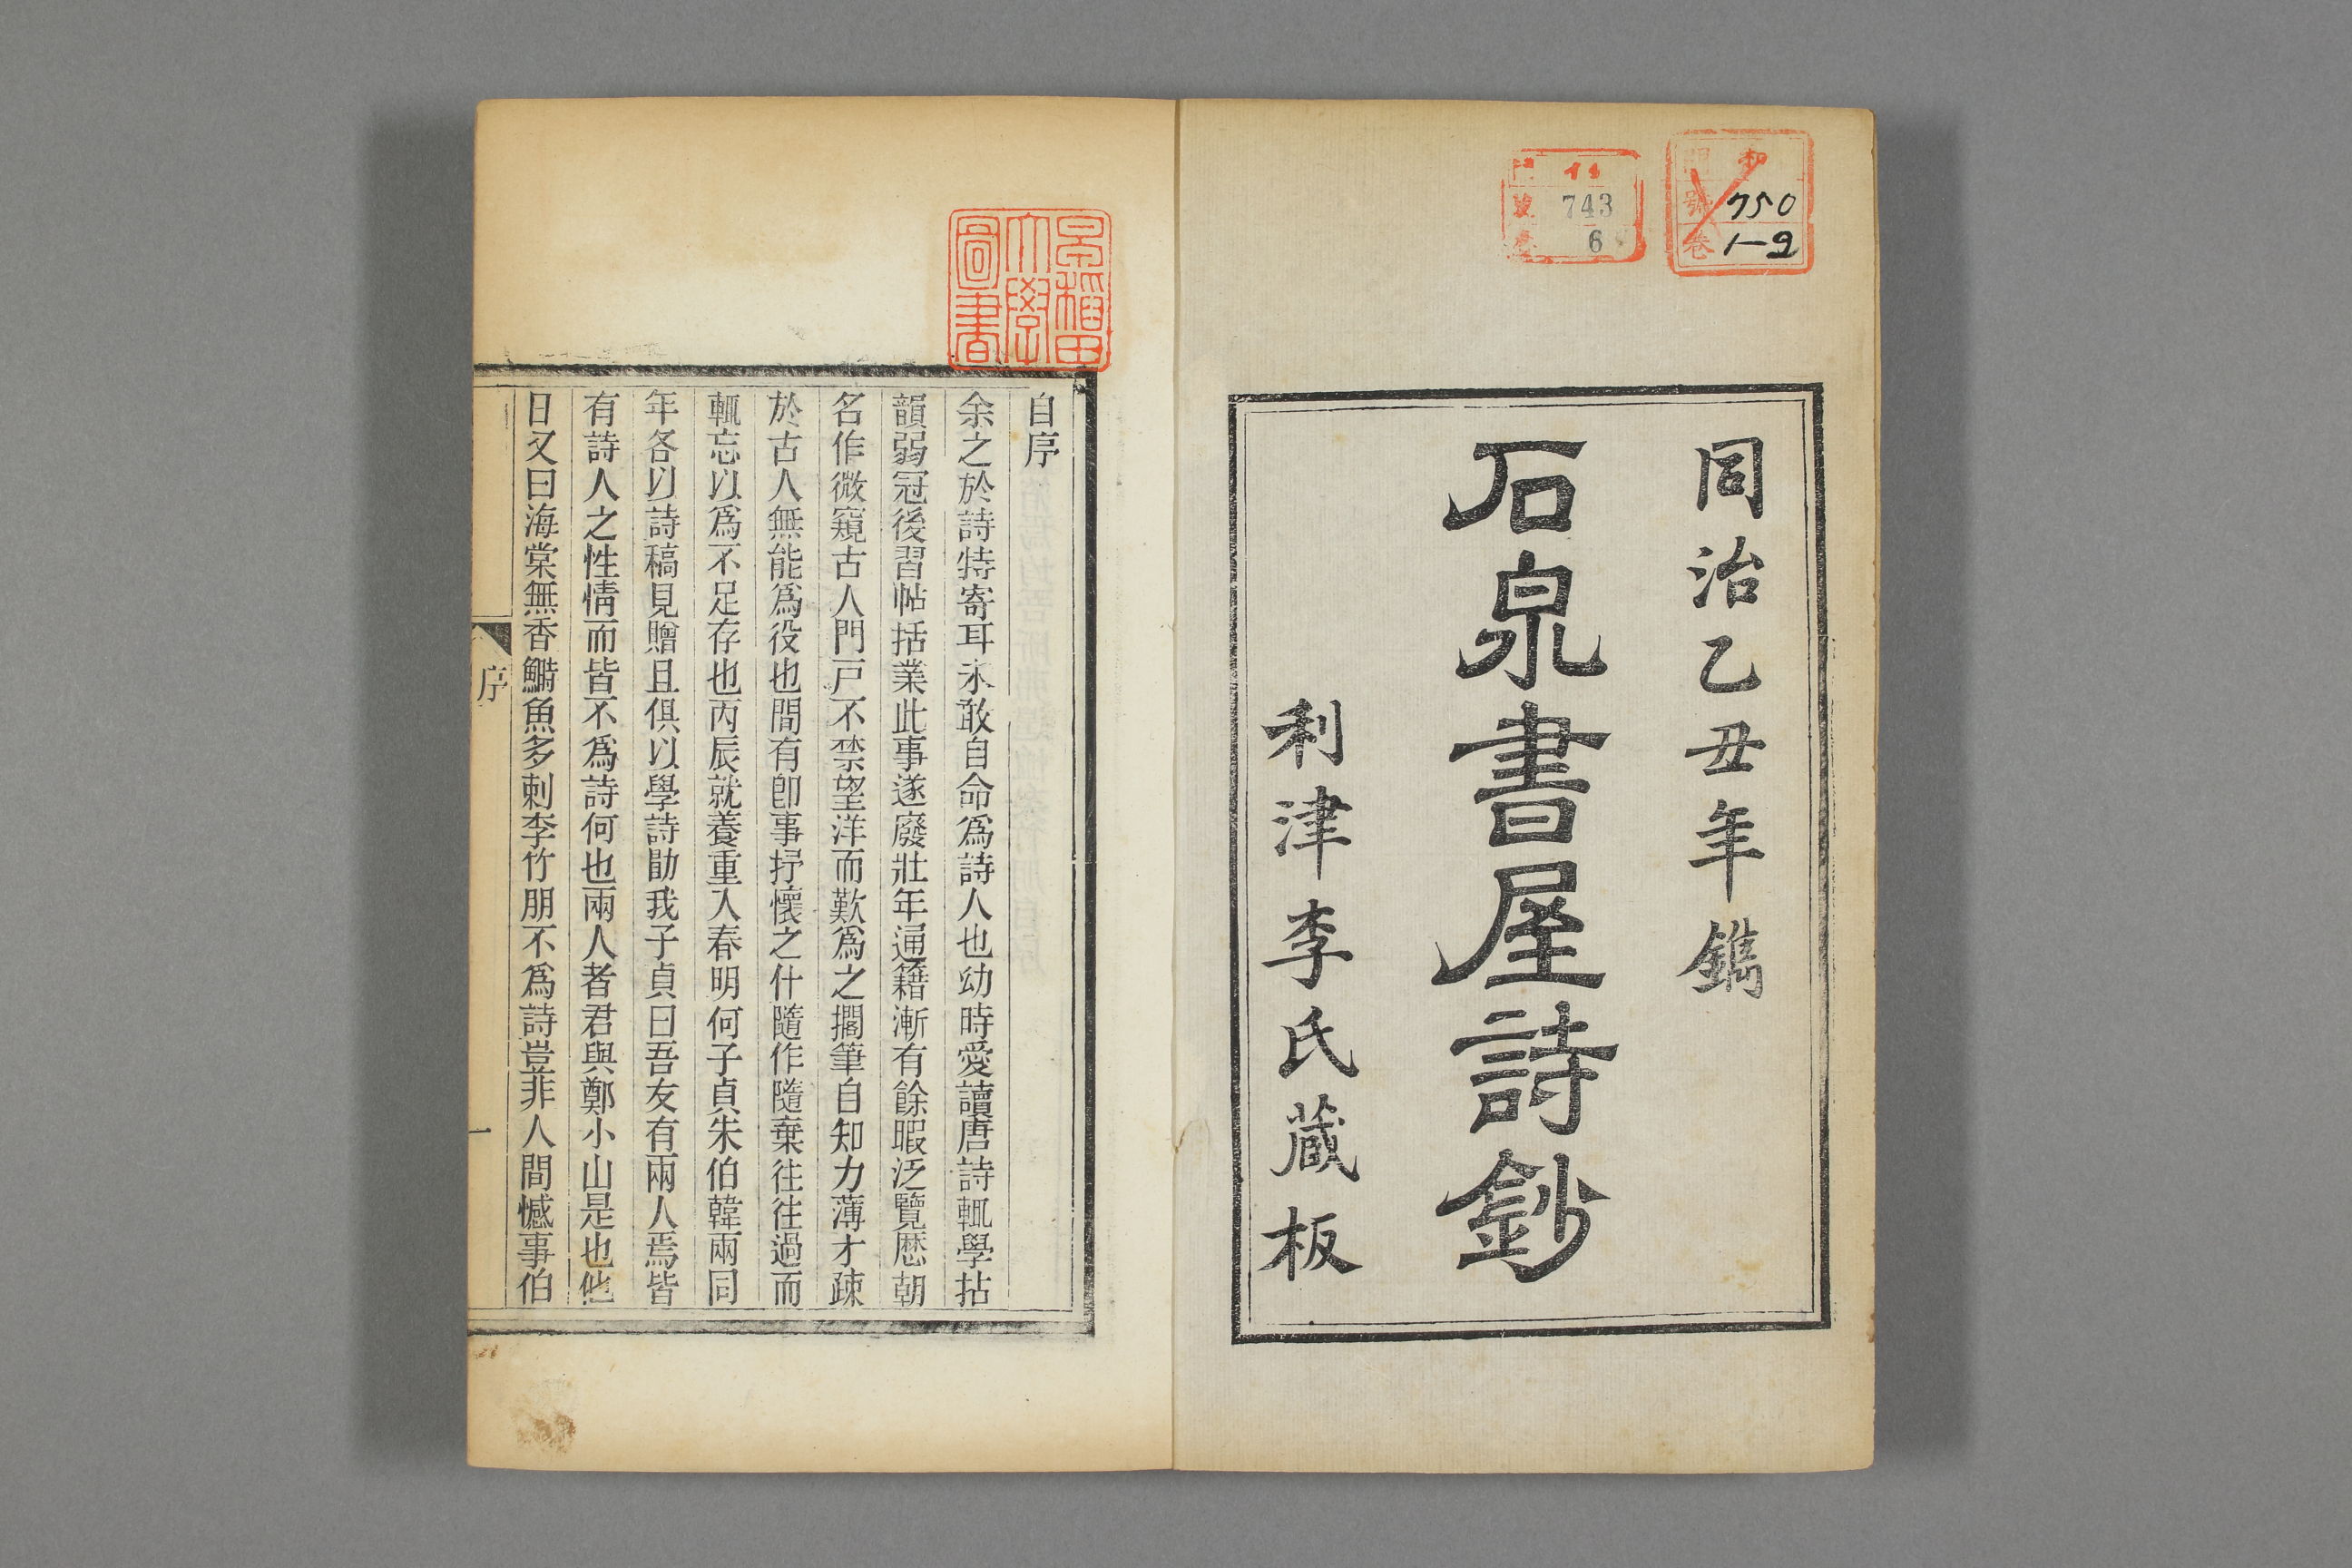 同治乙丑年鐫
石泉書屋詩鈔
利津李氏藏板
和
門
號 750
卷 1-9
門
號 743
卷 6
早稲田
大學
圖書
自序
余之於詩特寄耳未敢自命爲詩人也幼時愛讀唐詩輒學拈
韻弱冠後習帖括業此事遂廢壯年通籍漸有餘暇泛覽歴朝
名作微窺古人門戸不禁望洋而歎爲之擱筆自知力薄才疎
於古人無能爲役也間有卽事抒懷之什隨作隨棄往往過而
輒忘以爲不足存也丙辰就養重入春明何子貞朱伯韓兩同
年各以詩稿見贈且俱以學詩勖我子貞曰吾友有兩人焉皆
有詩人之性情而皆不爲詩何也兩人者君與鄭小山是也他
日又曰海棠無香鰣魚多刺李竹朋不爲詩豈非人間憾事伯
序
一